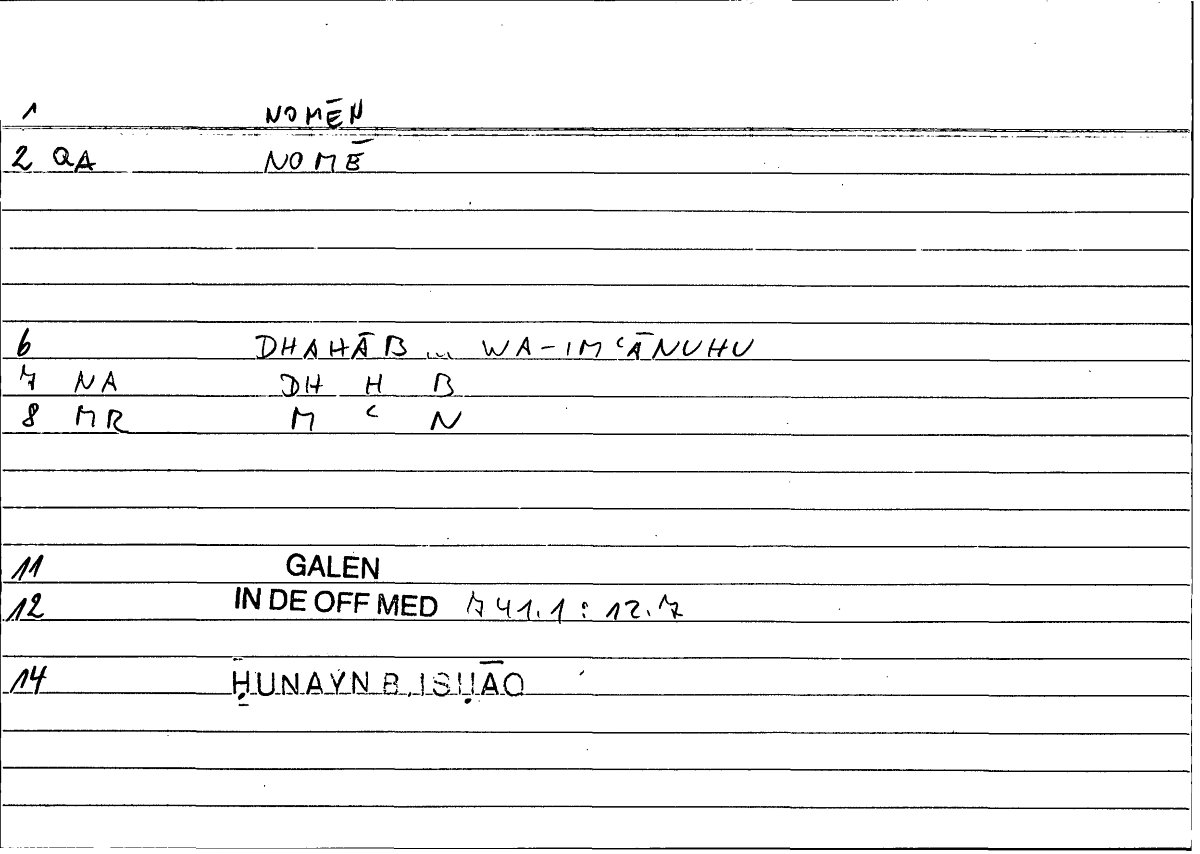 1 NOMĒN
2 QA NOMĒ
6 DHAHĀB ... WA-IMʿĀNUHU
7 NA DH H B
8 MR M ʿ N
11 GALEN
12 IN DE OFF MED 741.1 : 12.7
14 ḤUNAYN B. ISḤĀQ